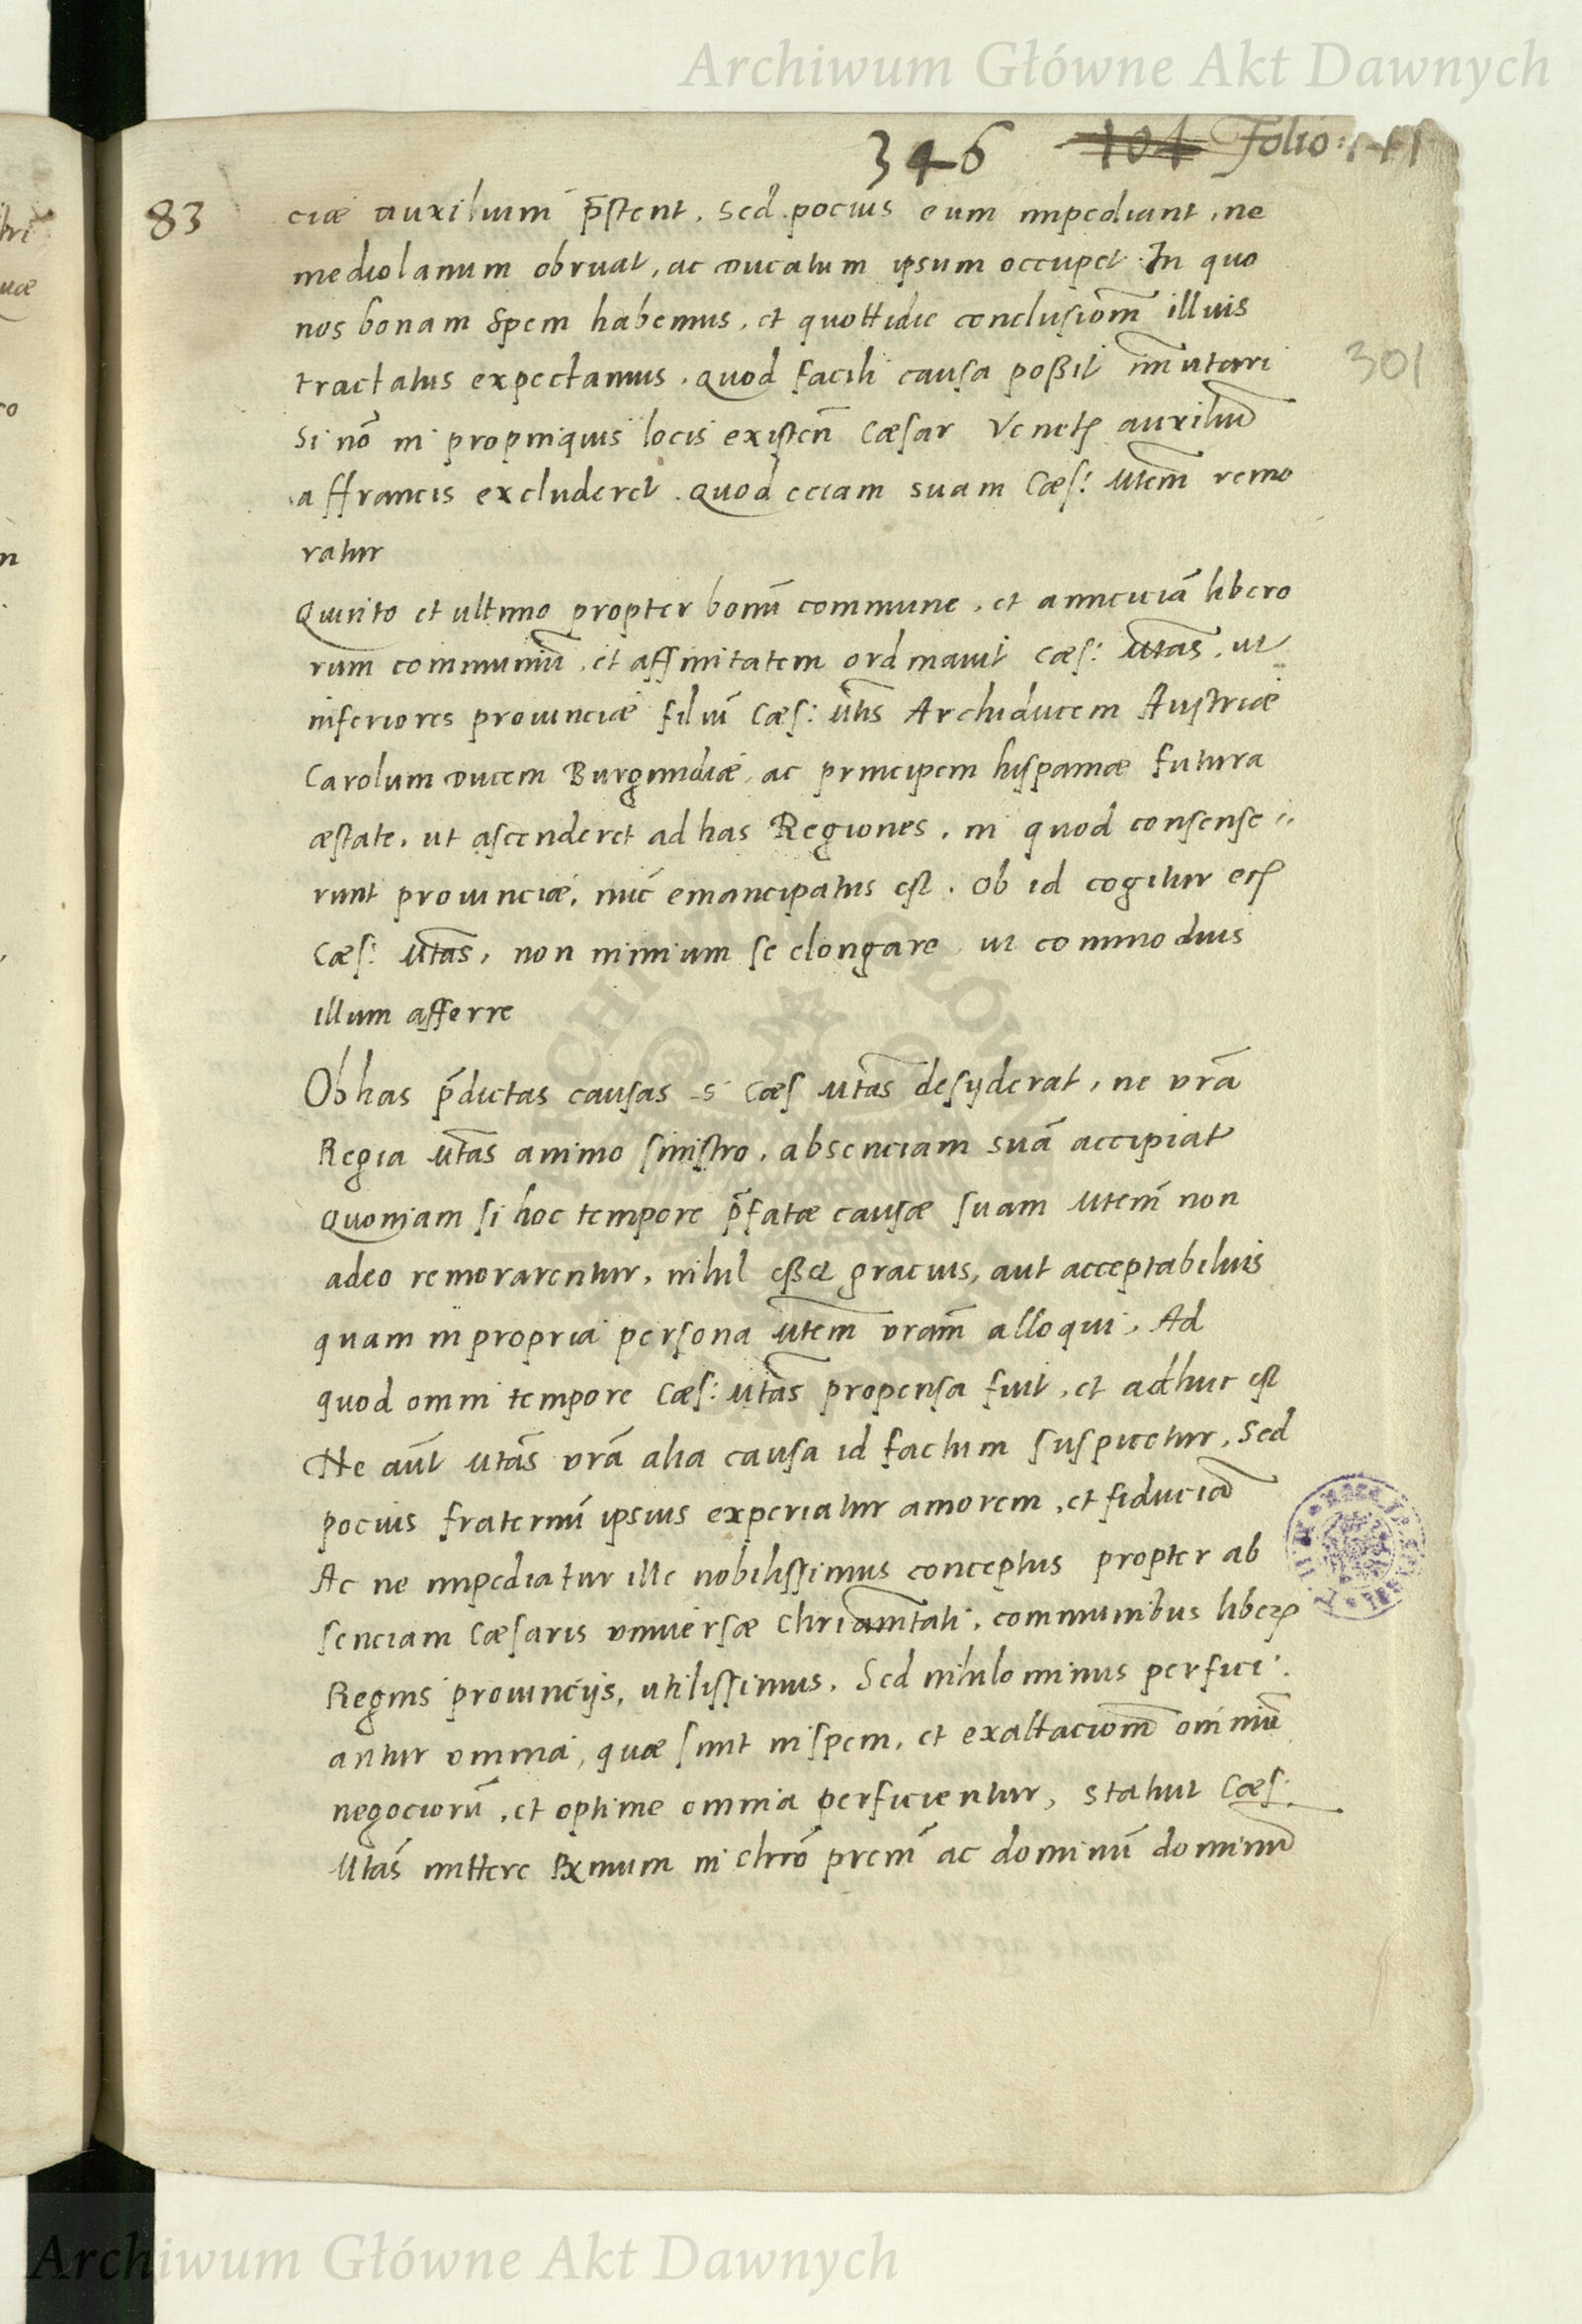 Archiwum Główne Akt Dawnych
346 104 Folio:
83
ciæ auxilium p̄stent. Sed pocius eum impediant, ne
mediolanum obruat, ac ducatum ipsum occupet. In quo
nos bonam spem habemus, et quottidie conclusiom̄ illius
tractatus expectamus. Quod facili causa poßit im̄utari
301
Si nō in propinquis locis existen̄ Cæsar Venetꝭ auxiliū
a ffrancis excluderet. Quod eciam suam Cæs: Mtem̄ remo
ratur
Quinto et ultimo propter bonū commune, et amiciciā libero
rum communiū, et affinitatem ordinauit Cæs: Mtas̄, ut
inferiores prouinciæ filiū Cæs: Mtis̄ Archiducem Austriæ
Carolum ducem Burgundiæ, ac principem hispaniæ futura
æstate, ut ascenderet ad has Regiones, in quod consense
runt prouinciæ, nuc̄ emancipatus est. Ob id cogitur eciꝫ
Cæs: Mtas̄, non nimium se elongare ut commodius
illum afferre
Ob has p̄dictas causas S Cæs Mtas̄ desyderat, ne vrā
Regia Mtas̄ animo sinistro, absenciam suā accipiat
Quoniam si hoc tempore p̄fatæ causæ suam Mtem̄ non
adeo remorarentur, nihil eßet gracius, aut acceptabilius
quam in propria persona Mtem̄ vram̄ alloqui, Ad
quod omni tempore Cæs: Mtas̄ propensa fuit, et adhuc est
Ne aūt Mtas̄ vrā alia causa id factum suspicetur, Sed
pocius fraternū ipsius experiatur amorem, et fiduciā
Ac ne impediatur ille nobilissimus conceptus propter ab
senciam Cæsaris vniuersæ Chrianitati, communibus liberꝭ
Regnis prouincijs, utilissimus, Sed nihilominus perfici
antur omnia, quæ sunt in spem, et exaltaciom̄ omniū
negociorū, et optime omnia perficientur, statuit Cæs:
Mtas̄ mittere Rx̄mum in Chrō prem̄ ac dominū dominū
Archiwum Główne Akt Dawnych